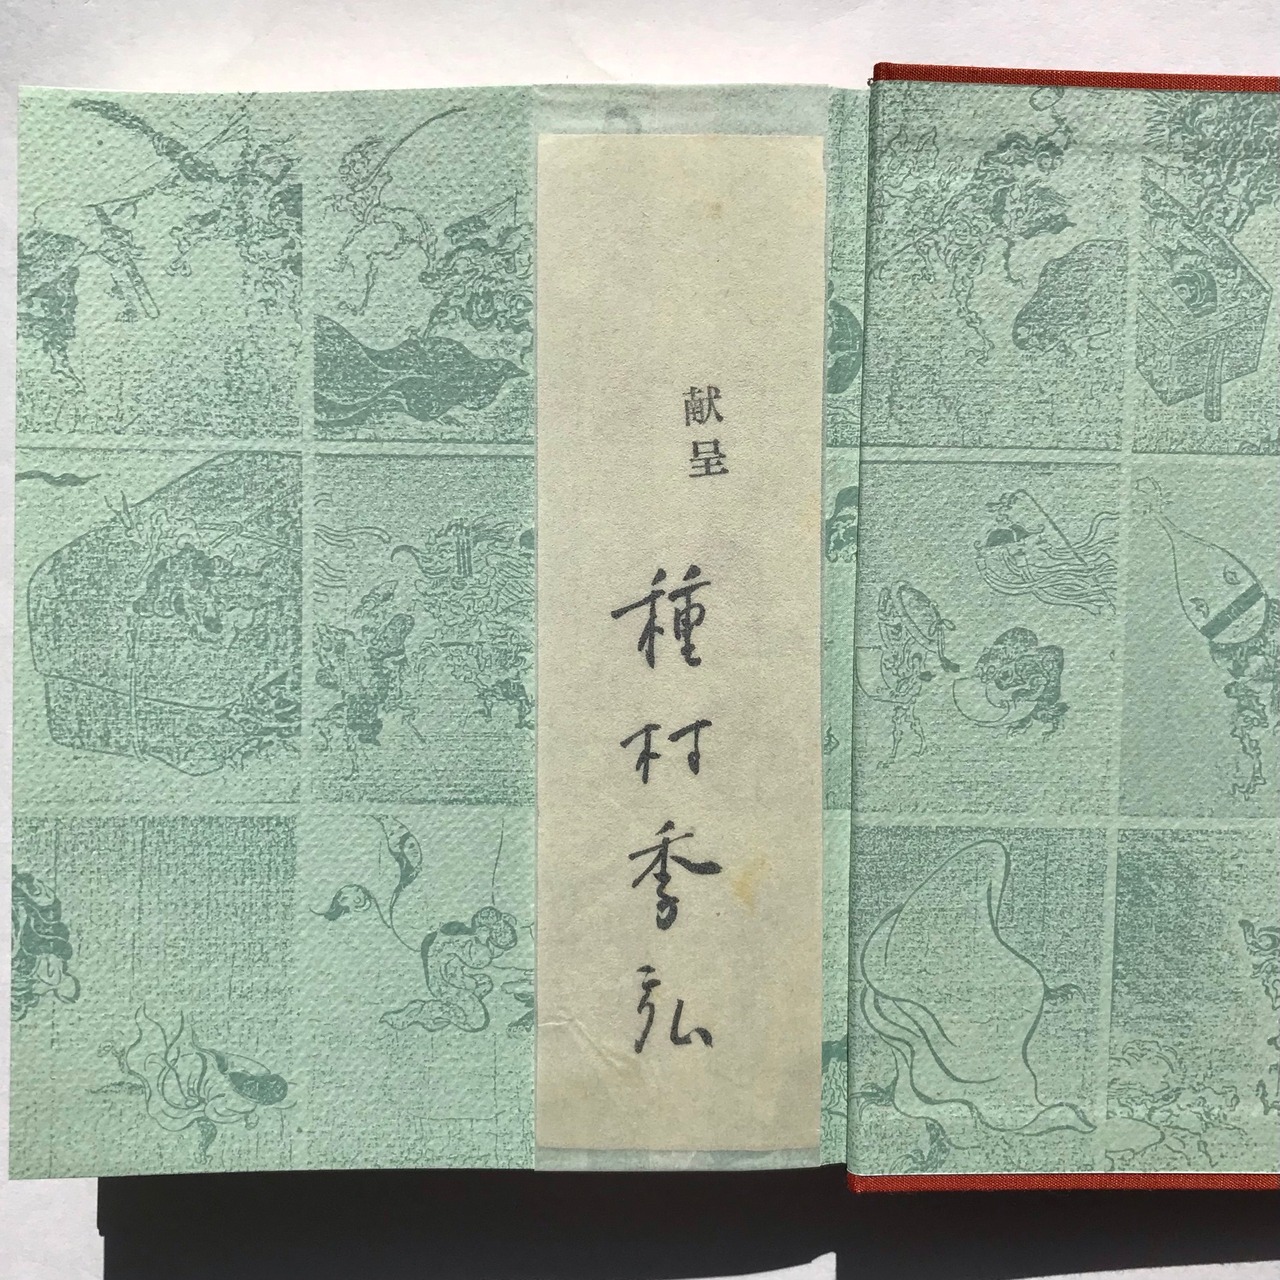 献呈
種村季弘